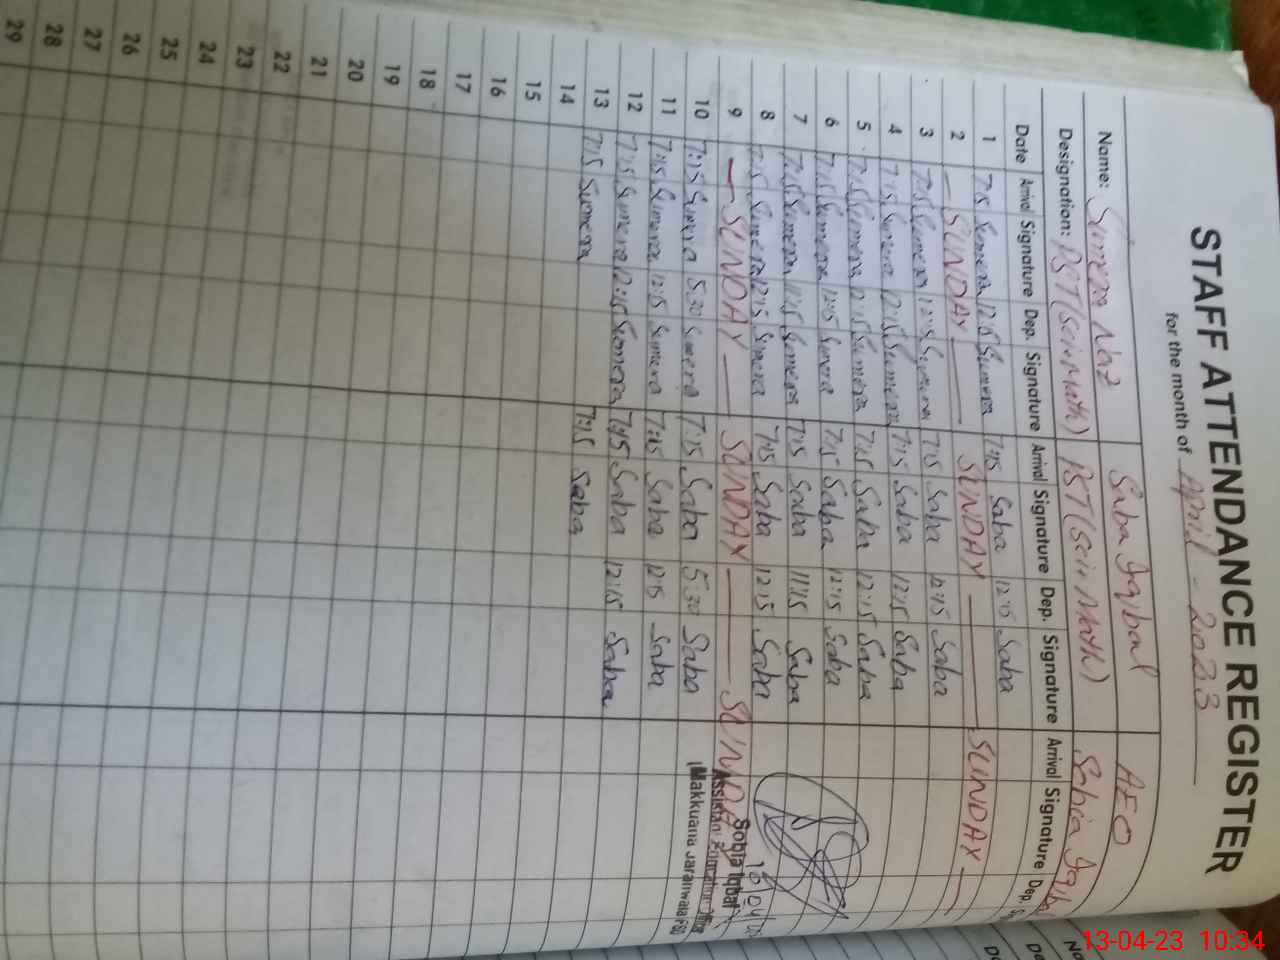 STAFF ATTENDANCE REGISTER
for the month of April - 2023
Name: Sumera Naz Saba Iqbal AEO
Designation: PST (Sci-Math) PST (Sci-Math) Sobia Iqbal
Date Arrival Signature Dep. Signature Arrival Signature Dep. Signature Arrival Signature Dep.
1 7:15 Sumera 12:15 Sumera 7:15 Saba 12:15 Saba
2 — SUNDAY — SUNDAY — SUNDAY —
3 7:15 Sumera 12:15 Sumera 7:15 Saba 12:15 Saba
4 7:15 Sumera 12:15 Sumera 7:15 Saba 12:15 Saba
5 7:15 Sumera 12:15 Sumera 7:15 Saba 12:15 Saba
6 7:15 Sumera 12:15 Sumera 7:15 Saba 12:15 Saba
7 7:15 Sumera 11:15 Sumera 7:15 Saba 11:15 Saba
8 7:15 Sumera 12:15 Sumera 7:15 Saba 12:15 Saba
9 — SUNDAY — SUNDAY — SUNDA
10 7:15 Sumera 5:30 Sumera 7:15 Saba 5:30 Saba
11 7:15 Sumera 12:15 Sumera 7:15 Saba 12:15 Saba
12 7:15 Sumera 12:15 Sumera 7:15 Saba 12:15 Saba
13 7:15 Sumera 7:15 Saba
14
15
16
17
18
19
20
21
22
23
24
25
26
27
28
29
Sobia Iqbal
Assistant Education Office
Makkuana Jaranwala FSD
13-04-23 10:34